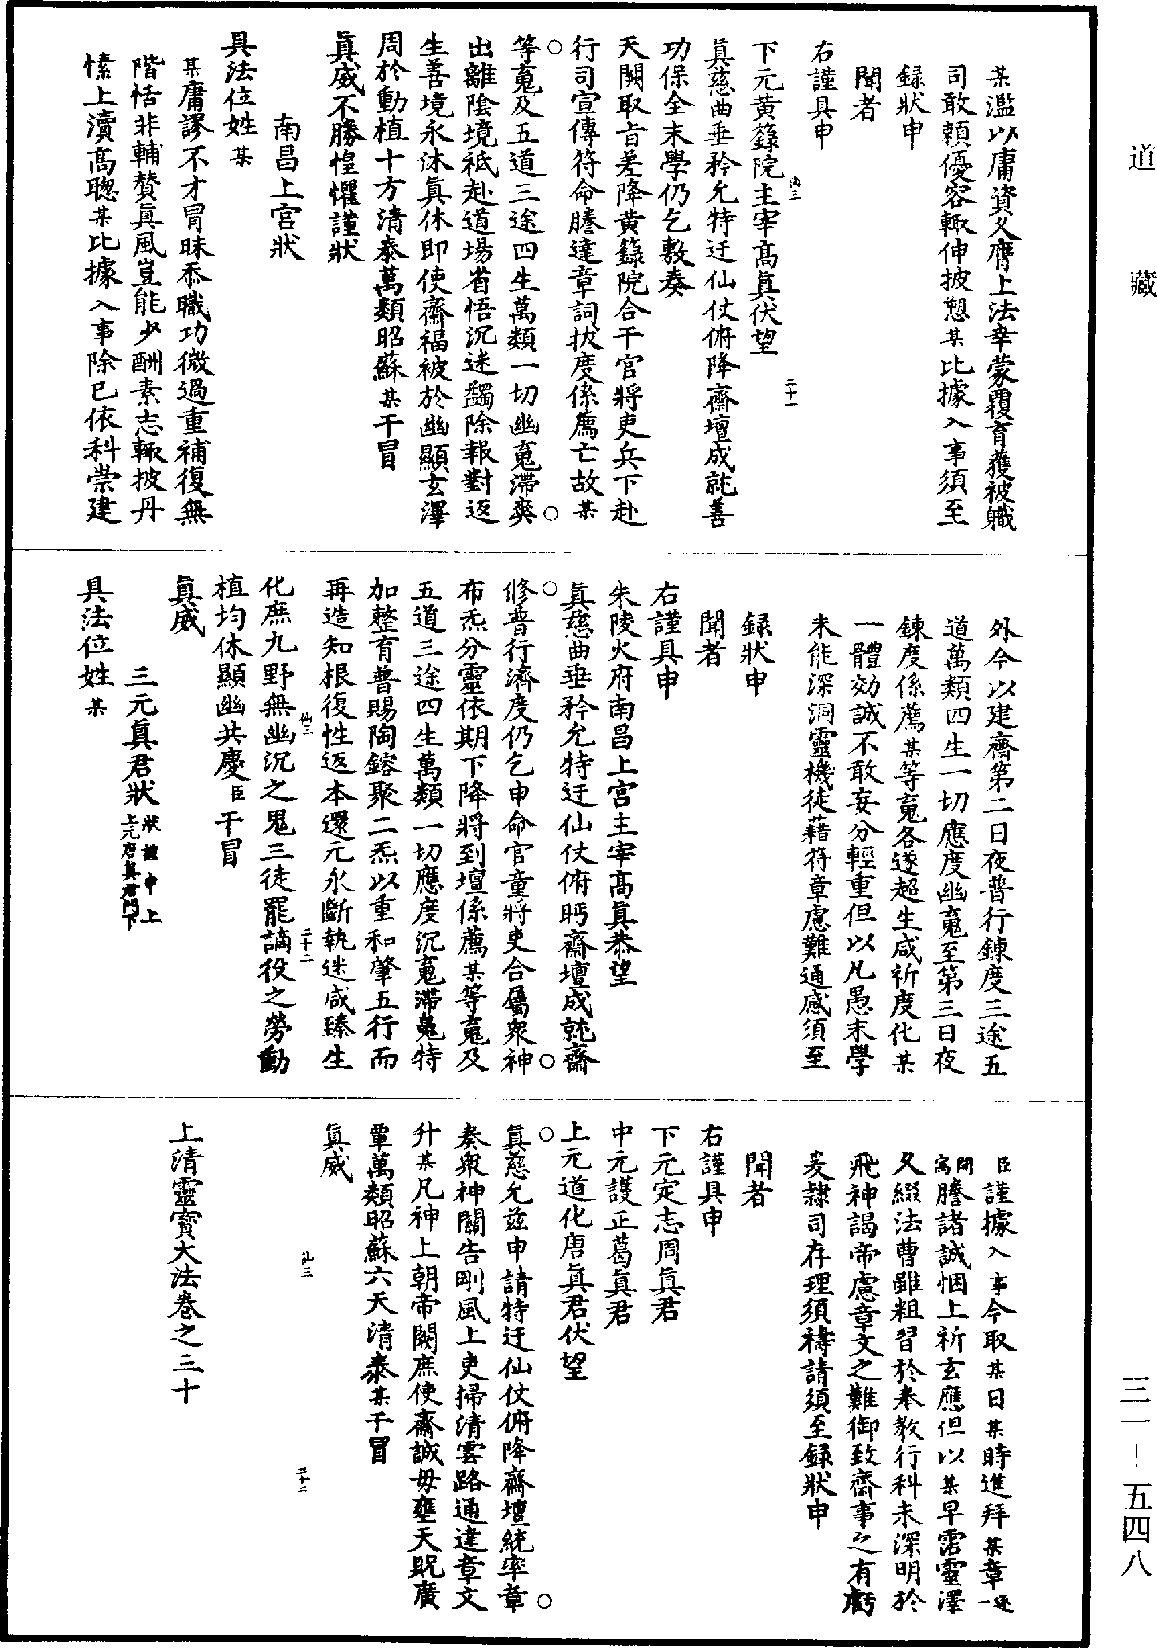 道藏
某濫以庸資久膺上法幸蒙覆育獲被職
司敢賴優容輙伸披懇某比據入事須至
録狀申
聞者
右謹具申
下元黃籙院主宰高眞伏望
眞慈曲垂矜允特迂仙仗俯降齋壇成就善
功保全末學仍乞敷奏
天闕取旨差降黃籙院合干官將吏兵下赴
行司宣傳符命謄達章詞拔度係薦亡故某
等䰟及五道三途四生萬類一切幽䰟滯爽
出離陰境祇赴道場省悟沉迷蠲除報對返
生善境永沐眞休即使齋福被於幽顯玄澤
周於動植十方清泰萬類昭蘇某干冒
眞威不勝惶懼謹狀
南昌上宮狀
具法位姓某
某庸謬不才冒昧忝職功微過重補復無
階恬非輔贊眞風豈能少酬素志輙披丹
愫上瀆高聰某比據入事除已依科崇建
外今以建齋第二日夜普行鍊度三途五
道萬類四生一切應度幽䰟至第三日夜
鍊度係薦某等䰟各遂超生咸祈度化某
一體効誠不敢妄分輕重但以凡愚末學
未能深洞靈機徒藉符章慮難通感須至
録狀申
聞者
右謹具申
朱陵火府南昌上宮主宰高眞恭望
眞慈曲垂矜允特迂仙仗俯眄齋壇成就齋
修普行濟度仍乞申命官童將吏合屬衆神
布炁分靈依期下降將到壇係薦某等䰟及
五道三途四生萬類一切應度沉䰟滯魄特
加整育普賜陶鎔聚二炁以重和肇五行而
再造知根復性返本還元永斷執迷咸臻生
化庶九野無幽沉之鬼三徒罷謫役之勞動
植均休顯幽共慶臣干冒
眞威
三元眞君狀 狀謹申上
上元唐眞君門下
具法位姓某
臣謹據入事今取某日某時進拜某章一通
聞奏
謄諸誠悃上祈玄應但以某早霑靈澤
久綴法曹雖粗習於奉教行科未深明於
飛神謁帝慮章文之難御致齋事之有虧
爰隸司存理須禱請須至録狀申
聞者
右謹具申
下元定志周眞君
中元護正葛眞君
上元道化唐眞君伏望
眞慈允茲申請特迂仙仗俯降齋壇統率章
奏衆神關告剛風上吏掃清雲路通達章文
升某凡神上朝帝闕庶使齋誠毋壅天貺廣
覃萬類昭蘇六天清泰某干冒
眞威
上清靈寶大法卷之三十
三一-五四八